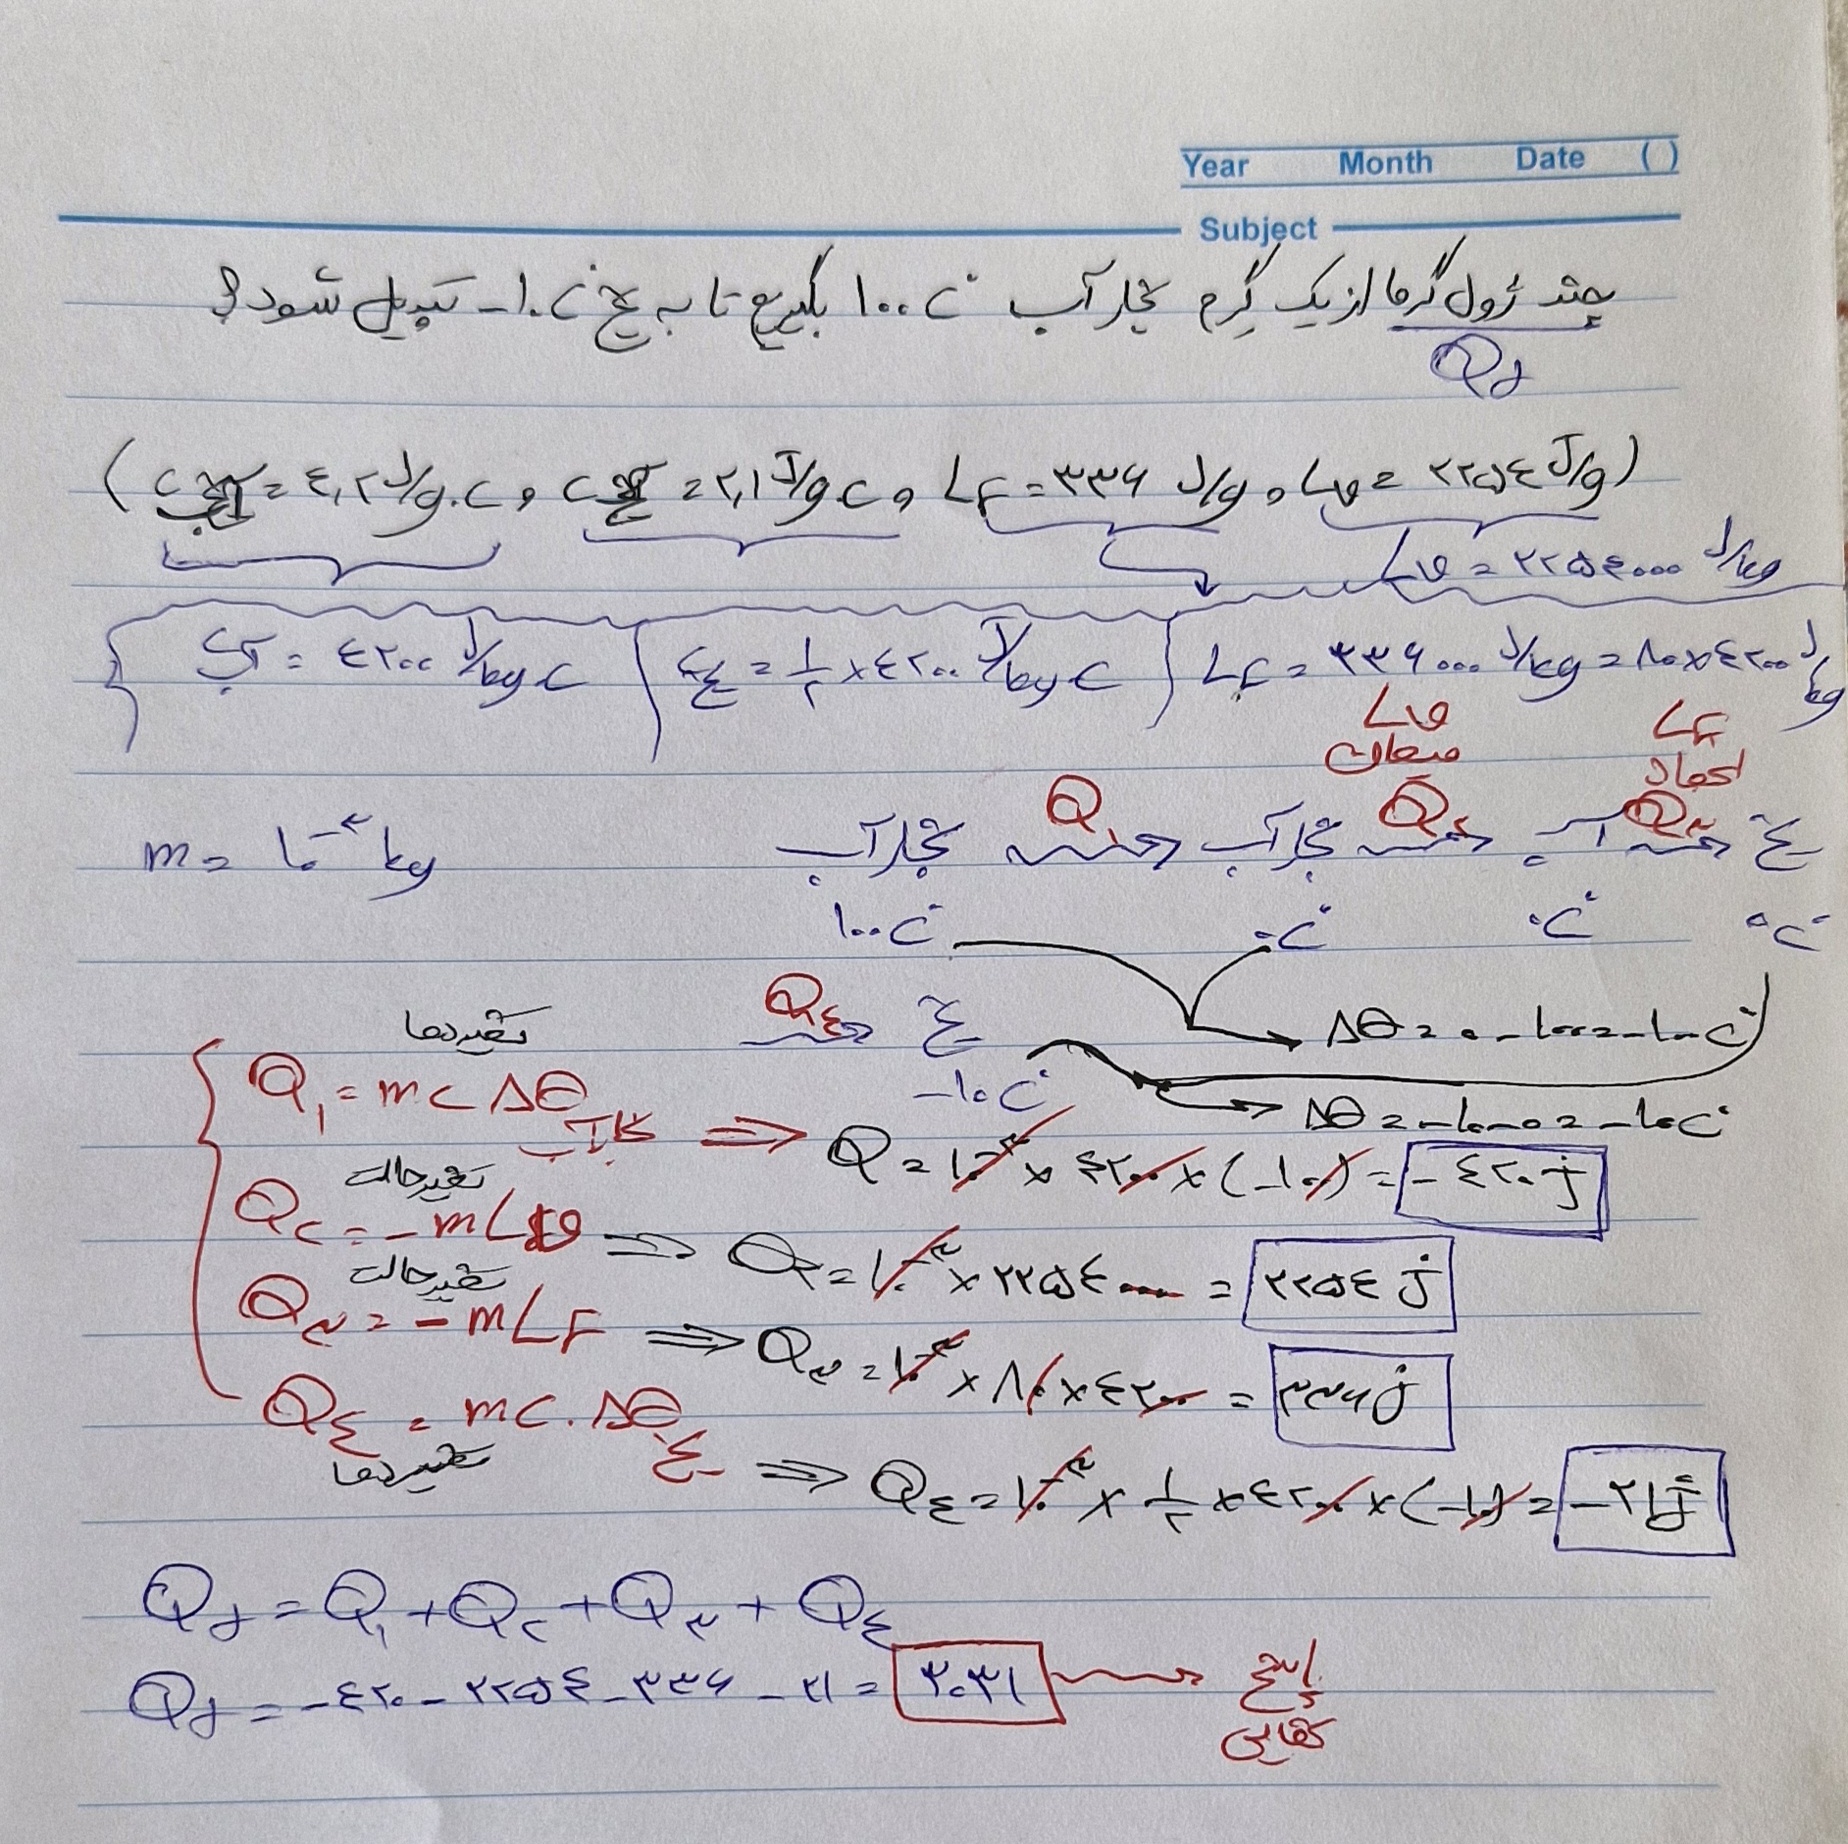 Year Month Date ( )
Subject
چند ژول گرما از یک گرم بخار آب ۱۰۰°C بگیریم تا به یخ ۱۰°C- تبدیل شود؟
Qط
(C آب = ٤,۲ J/g.C و C یخ = ۲,۱ J/g.C و LF = ۳۳۶ J/g و LV = ۲۲۵٤ J/g)
LV = ۲۲۵٤۰۰۰ J/kg
C آب = ٤۲۰۰ J/kg.C
C یخ = ۱/۲ × ٤۲۰۰ J/kg.C
LF = ۳۳۶۰۰۰ J/kg = ۸۰×٤۲۰۰ J/kg
LV LF
میعان انجماد
m = ۱۰⁻³ kg
بخار آب Q۱ بخار آب Q۲ آب Q۳ یخ
۱۰۰°C ۰°C ۰°C ۰°C
Q٤ یخ
-۱۰°C
Δθ = ۰ - ۱۰۰ = -۱۰۰°C
Δθ = -۱۰ - ۰ = -۱۰°C
تغییر دما
Q۱ = mc Δθ بخار آب ⇒ Q = ۱۰⁻³ × ٤۲۰۰ × (-۱۰۰) = -٤۲۰ j
تغییر حالت
Q۲ = - mLV ⇒ Q۲ = ۱۰⁻³ × ۲۲۵٤۰۰۰ = ۲۲۵٤ j
تغییر حالت
Q۳ = - mLF ⇒ Q۳ = ۱۰⁻³ × ۸۰ × ٤۲۰۰ = ۳۳۶ j
Q٤ = mc. Δθ یخ ⇒ Q٤ = ۱۰⁻³ × ۱/۲ × ٤۲۰۰ × (-۱۰) = -۲۱ j
تغییر دما
Qط = Q۱ + Q۲ + Q۳ + Q٤
Qط = -٤۲۰ - ۲۲۵٤ - ۳۳۶ - ۲۱ = ۳۰۳۱
پاسخ
نهایی